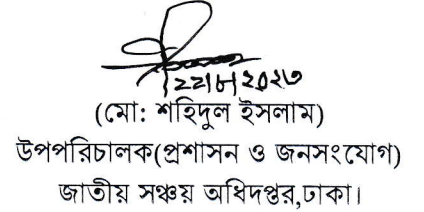 ২২|৮|২০২৩
(মো: শহিদুল ইসলাম)
উপপরিচালক(প্রশাসন ও জনসংযোগ)
জাতীয় সঞ্চয় অধিদপ্তর,ঢাকা।